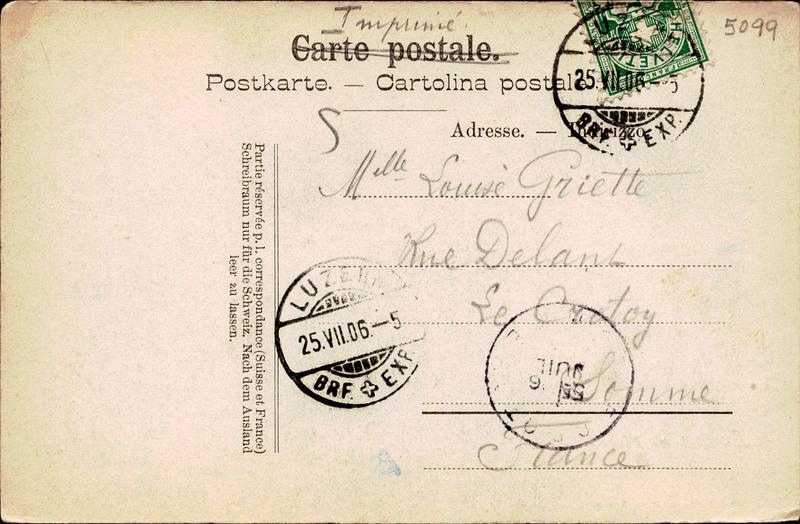 Imprimé.
5099
Carte postale.
Postkarte. — Cartolina postale
HELVETIA
FRANCO
25.VII.06.–5
BRF. EXP.
Adresse. — Indirizzo
Partie réservée p. l. correspondance (Suisse et France)
Schreibraum nur für die Schweiz. Nach dem Ausland
leer zu lassen.
Melle Louise Griette
Rue Delant
Le Crotoy
Somme
France
LUZERN
25.VII.06.–5
BRF. EXP.